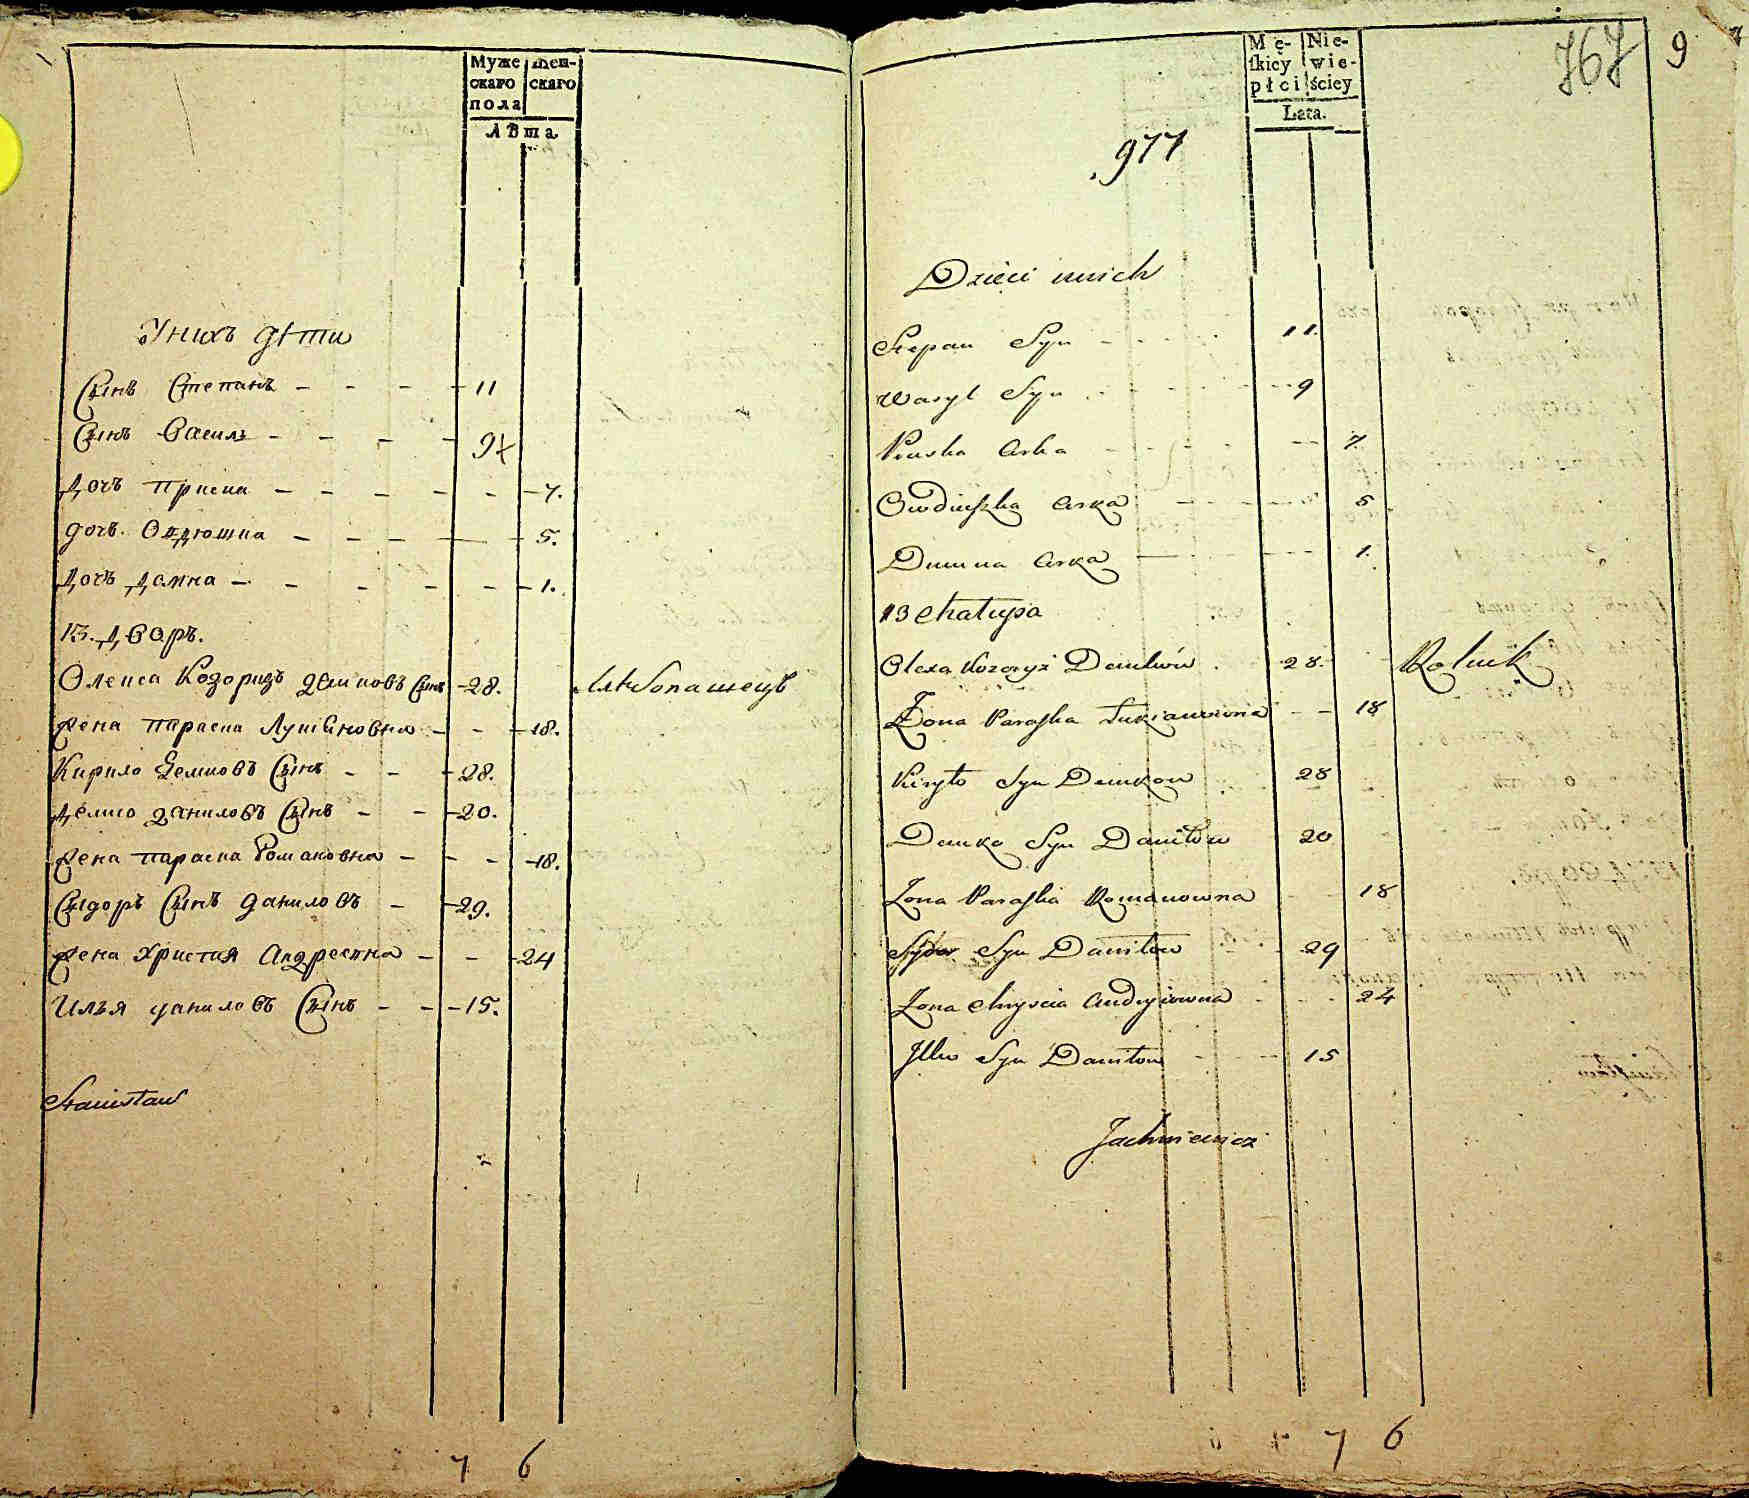 Муже скаго пола
Жен- скаго
Лѣта
Унихъ дѣти
Сынъ Степанъ - - - - 11
Сынъ Василь - - - - 9
Дочъ Приска - - - - - 7.
дочъ Овдюшка - - - - 5.
Дочъ Домна - - - - - 1.
13. Дворъ.
Олекса Козоризъ Демковъ Сынъ - 28. хлѣбопашецъ
Жена Параска Лукіановна - - 18.
Кирило Демковъ Сынъ - - - 28.
Демко Даниловъ Сынъ - - - 20.
Жена Параска Романовна - - - 18.
Сидоръ Сынъ Даниловъ - - 29.
Жена Христия Андреевна - - 24
Илья Даниловъ Сынъ - - - 15.
Stanisław
7 6
767 9
Mę- skiey płci
Nie- wie- ściey
Lata.
977
Dzieci unich
Stepan Syn - - - 11.
Wasyl Syn - - - 9
Pruska Córka - - - 7
Owdiuszka Córka - - - 5
Dumna Córka - - - 1.
13 Chałupa
Olexa Kozoryz Demków 28. Rolnik
Żona Paraska Łukianowna - - 18
Kiryło Syn Demkow 28
Demko Syn Daniłow 20
Żona Paraska Romanowna 18
Sydor Syn Daniłow 29
Żona Chryscia Andryiowna - - - 24
Jllia Syn Daniłow - - - 15
Jachniewicz
7 6